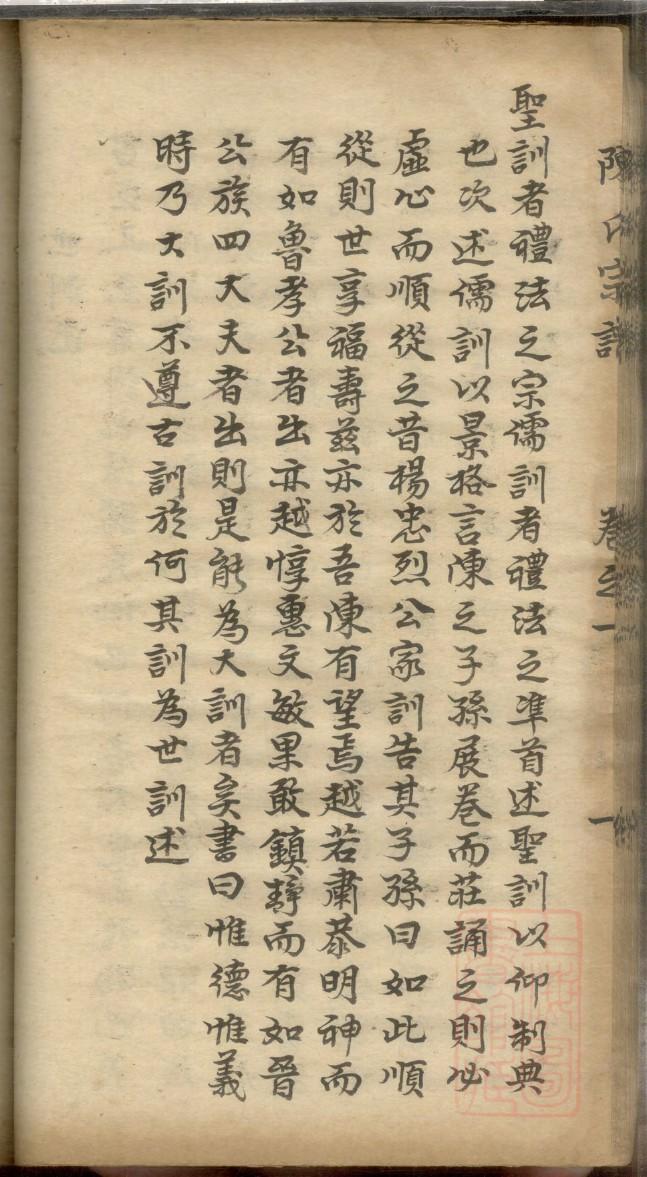 陳氏宗訓 卷之一 一
聖訓者禮法之宗儒訓者禮法之準首述聖訓以仰制典
也次述儒訓以景格言陳之子孫展卷而莊誦之則必
虛心而順從之昔楊忠烈公家訓告其子孫曰如此順
從則世享福壽兹亦於吾陳有望焉越若肅恭明神而
有如魯孝公者出亦越惇惠文敏果敢鎮靜而有如晉
公族四大夫者出則是能為大訓者矣書曰惟德惟義
時乃大訓不遵古訓於何其訓為世訓述